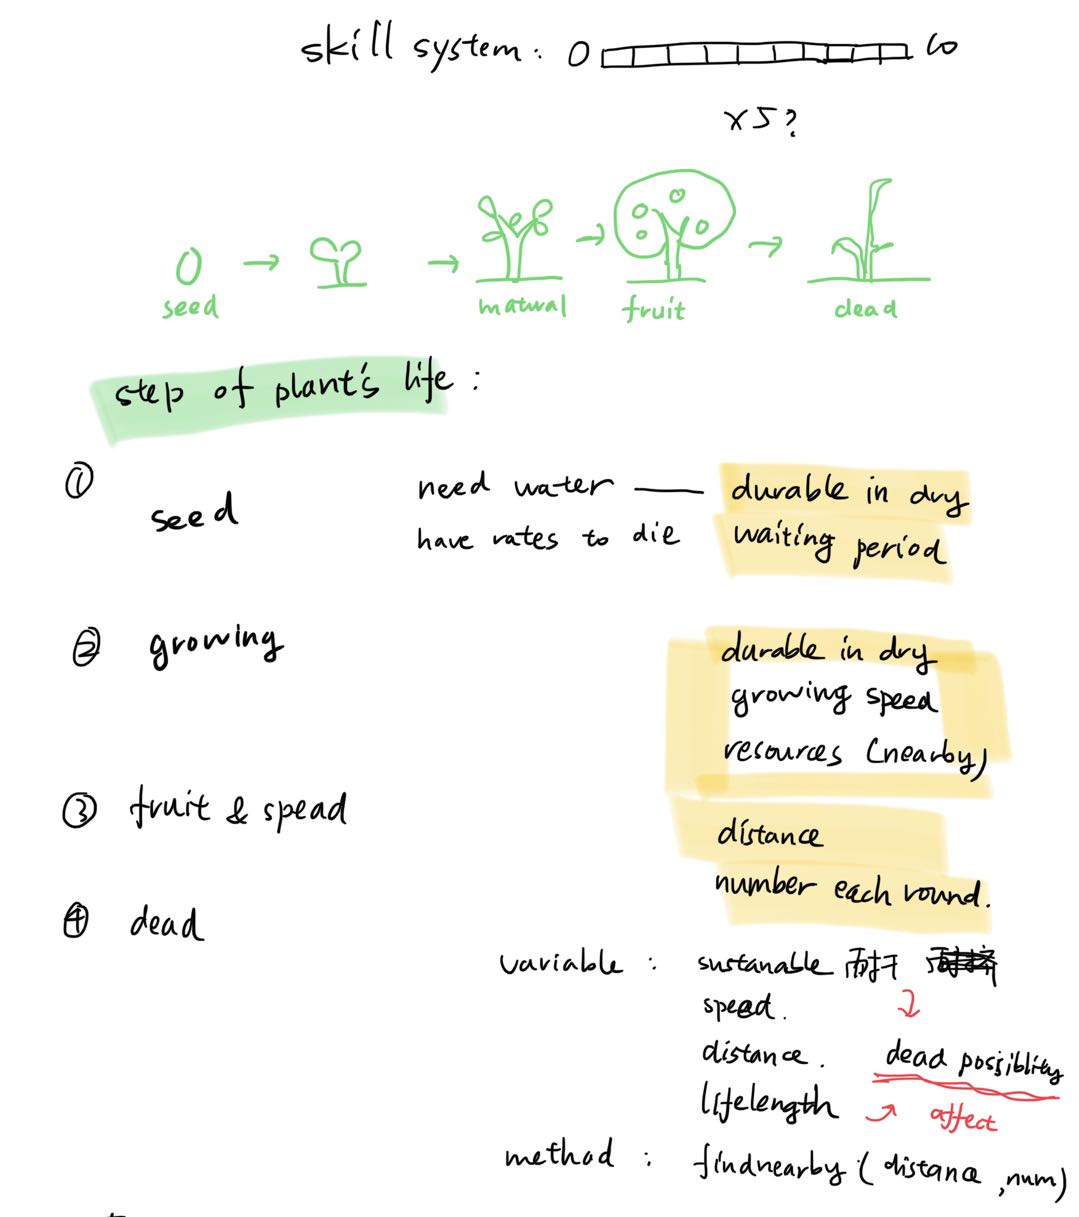 skill system : 0 10
x5?
seed matural fruit dead
step of plant's life :
① seed need water — durable in dry
have rates to die waiting period
② growing durable in dry
growing speed
resources (nearby)
③ fruit & spead distance
number each round.
④ dead
variable : sustanable 耐干
speed.
distance. dead possiblity
lifelength affect
method : findnearby ( distance , num)